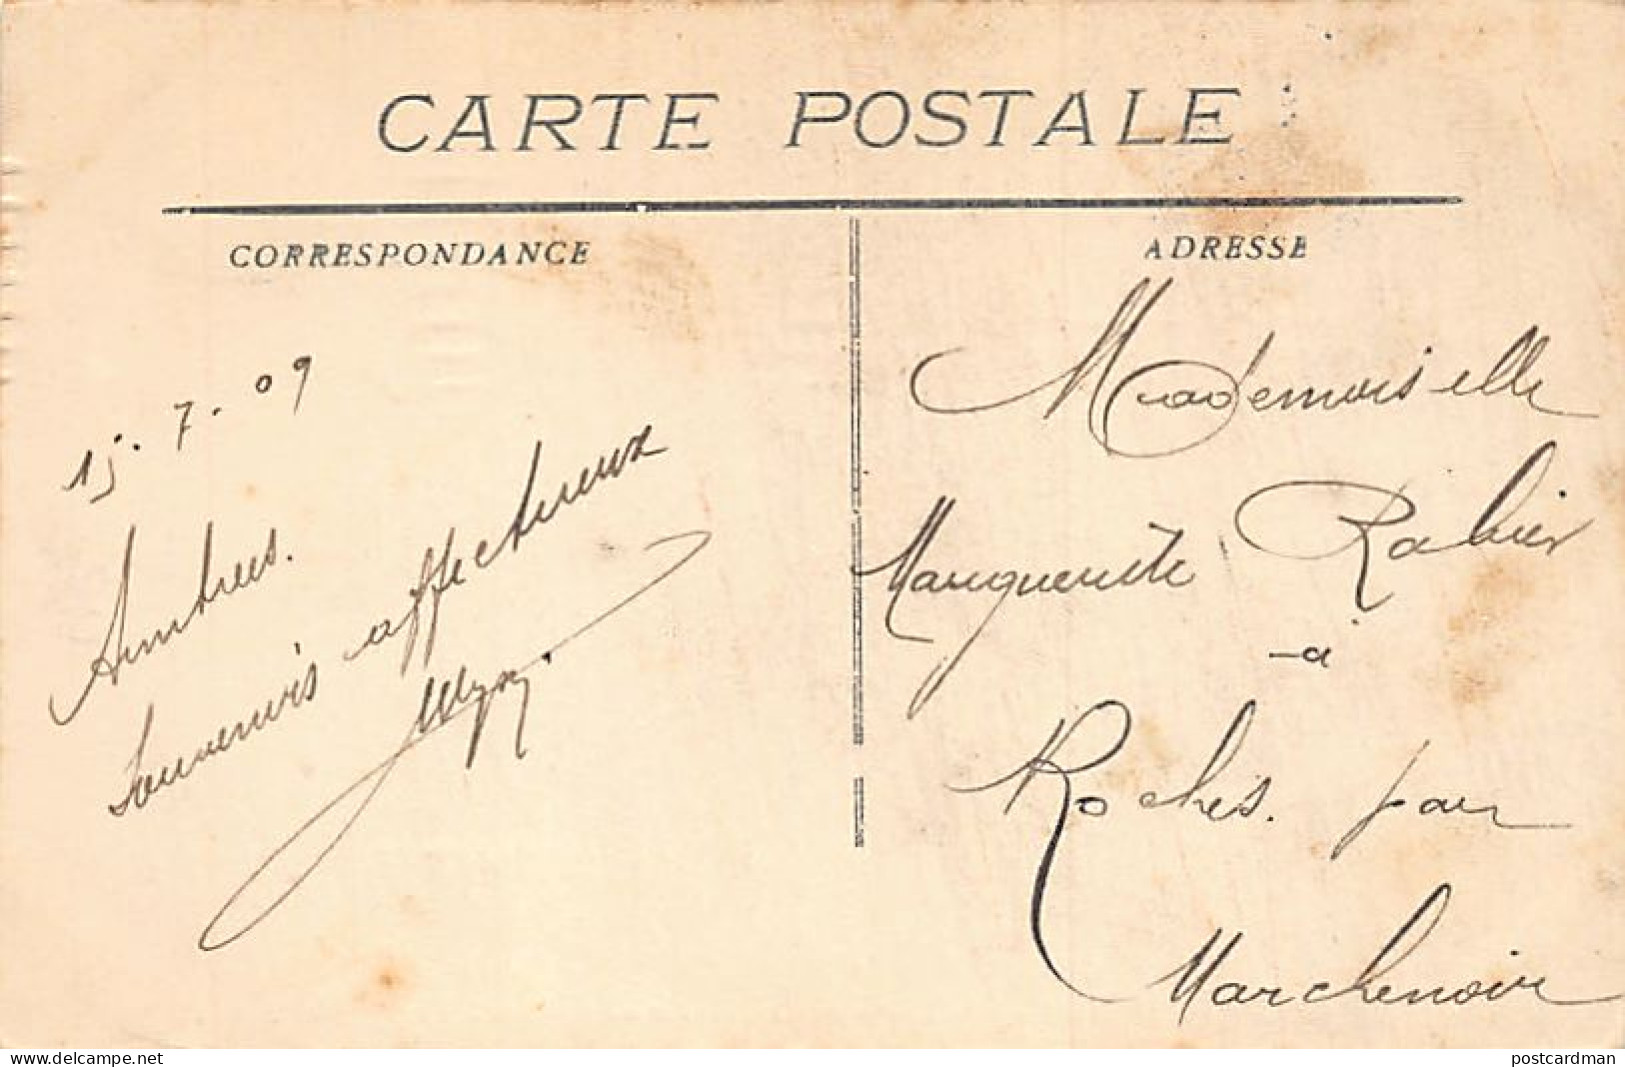 CARTE POSTALE
CORRESPONDANCE
15.7.09
Souvenirs affectueux
ADRESSE
Mademoiselle
Marguerite Rabier
à
Roches. par
Marchenoir
www.delcampe.net
postcardman